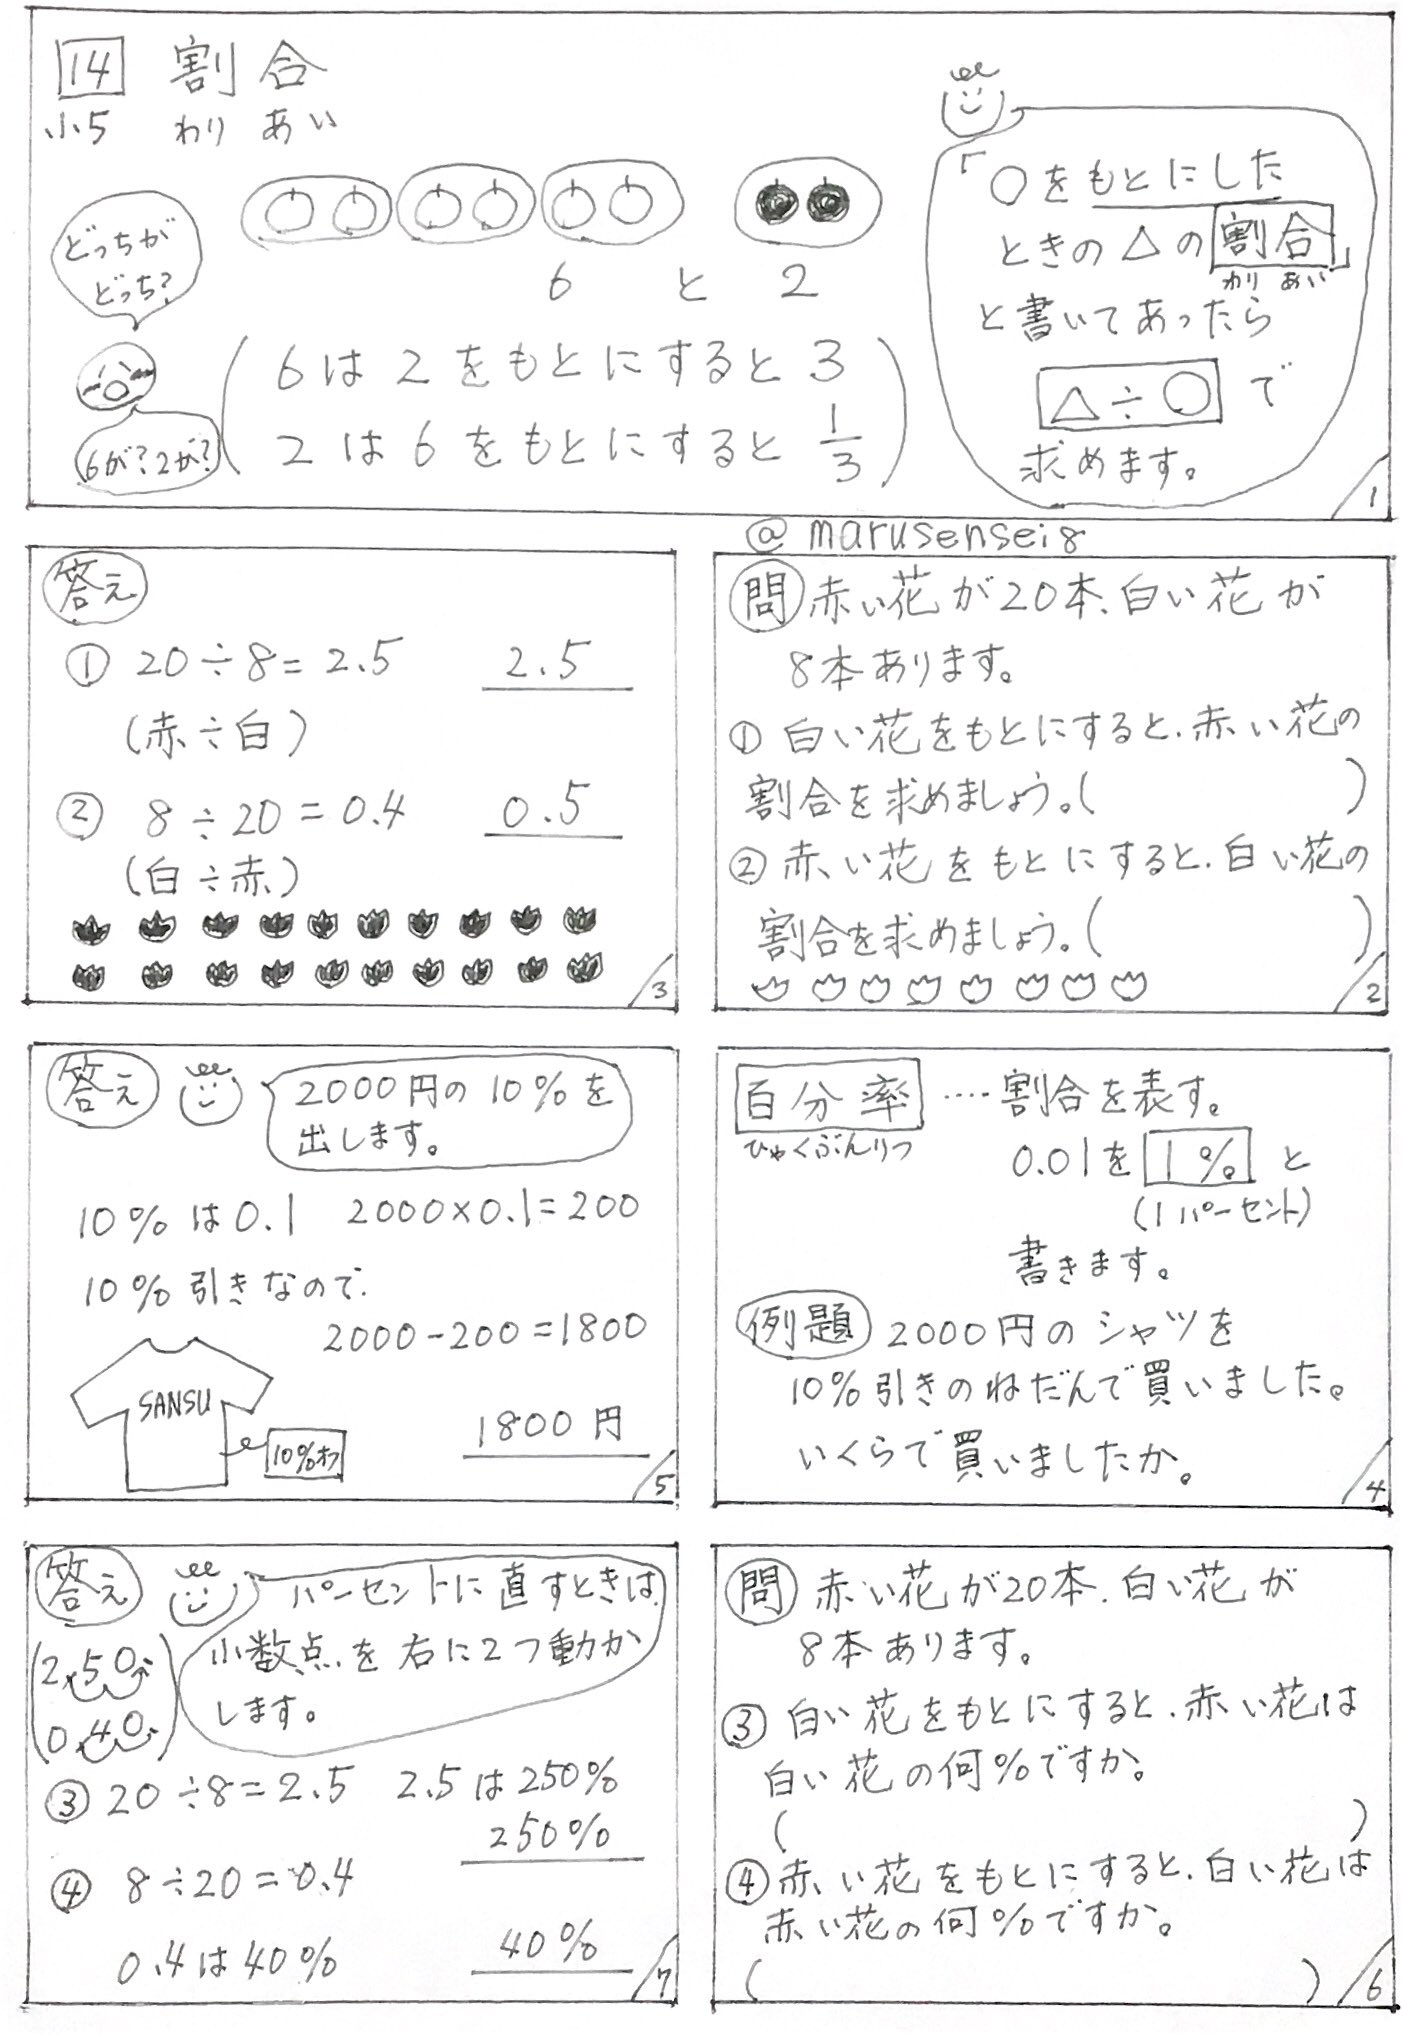 14 割合
小5 わりあい
どっちが
どっち?
6 と 2
6は2をもとにすると3
2は6をもとにすると1/3
6が?2が?
「○をもとにした
ときの△の割合」
わりあい
と書いてあったら
△÷○で
求めます。
1
@marusensei8
問 赤い花が20本、白い花が
8本あります。
① 白い花をもとにすると、赤い花の
割合を求めましょう。( )
② 赤い花をもとにすると、白い花の
割合を求めましょう。( )
2
答え
① 20÷8=2.5 2.5
(赤÷白)
② 8÷20=0.4 0.5
(白÷赤)
3
百分率 ‥‥割合を表す。
ひゃくぶんりつ
0.01を1%と
(1パーセント)
書きます。
例題 2000円のシャツを
10%引きのねだんで買いました。
いくらで買いましたか。
4
答え
2000円の10%を
出します。
10%は0.1 2000×0.1=200
10%引きなので、
2000-200=1800
SANSU
10%オフ
1800円
5
問 赤い花が20本、白い花が
8本あります。
③ 白い花をもとにすると、赤い花は
白い花の何%ですか。
( )
④ 赤い花をもとにすると、白い花は
赤い花の何%ですか。
( )
6
答え
パーセントに直すときは、
小数点を右に2つ動か
します。
2.50.
0.40.
③ 20÷8=2.5 2.5は250%
250%
④ 8÷20=0.4
0.4は40% 40%
7